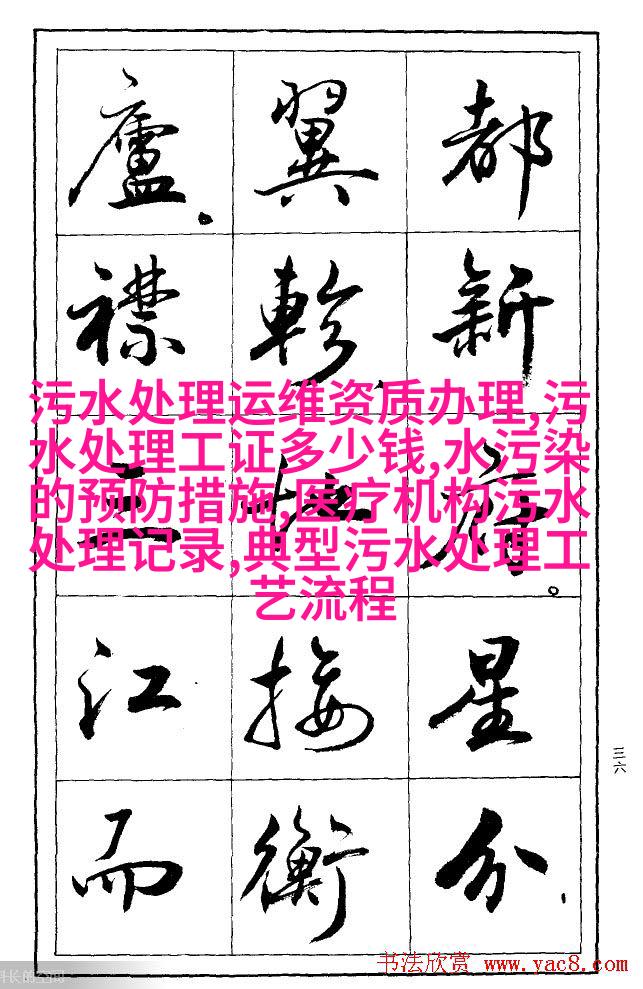 都新府。星分
翼軫地接衡
廬。襟三江而
污水处理运维资质办理,污
水处理工证多少钱,水污染
的预防措施,医疗机构污水
处理记录,典型污水处理工
艺流程
三六
书法欣赏 www.yac8.com
长的空间